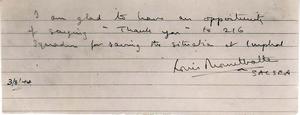 I am glad to have an opportunity
of saying "Thank you" to 216
Squadron for saving the situation at Imphal
Louis Mountbatten
3/5/44 SACSEA